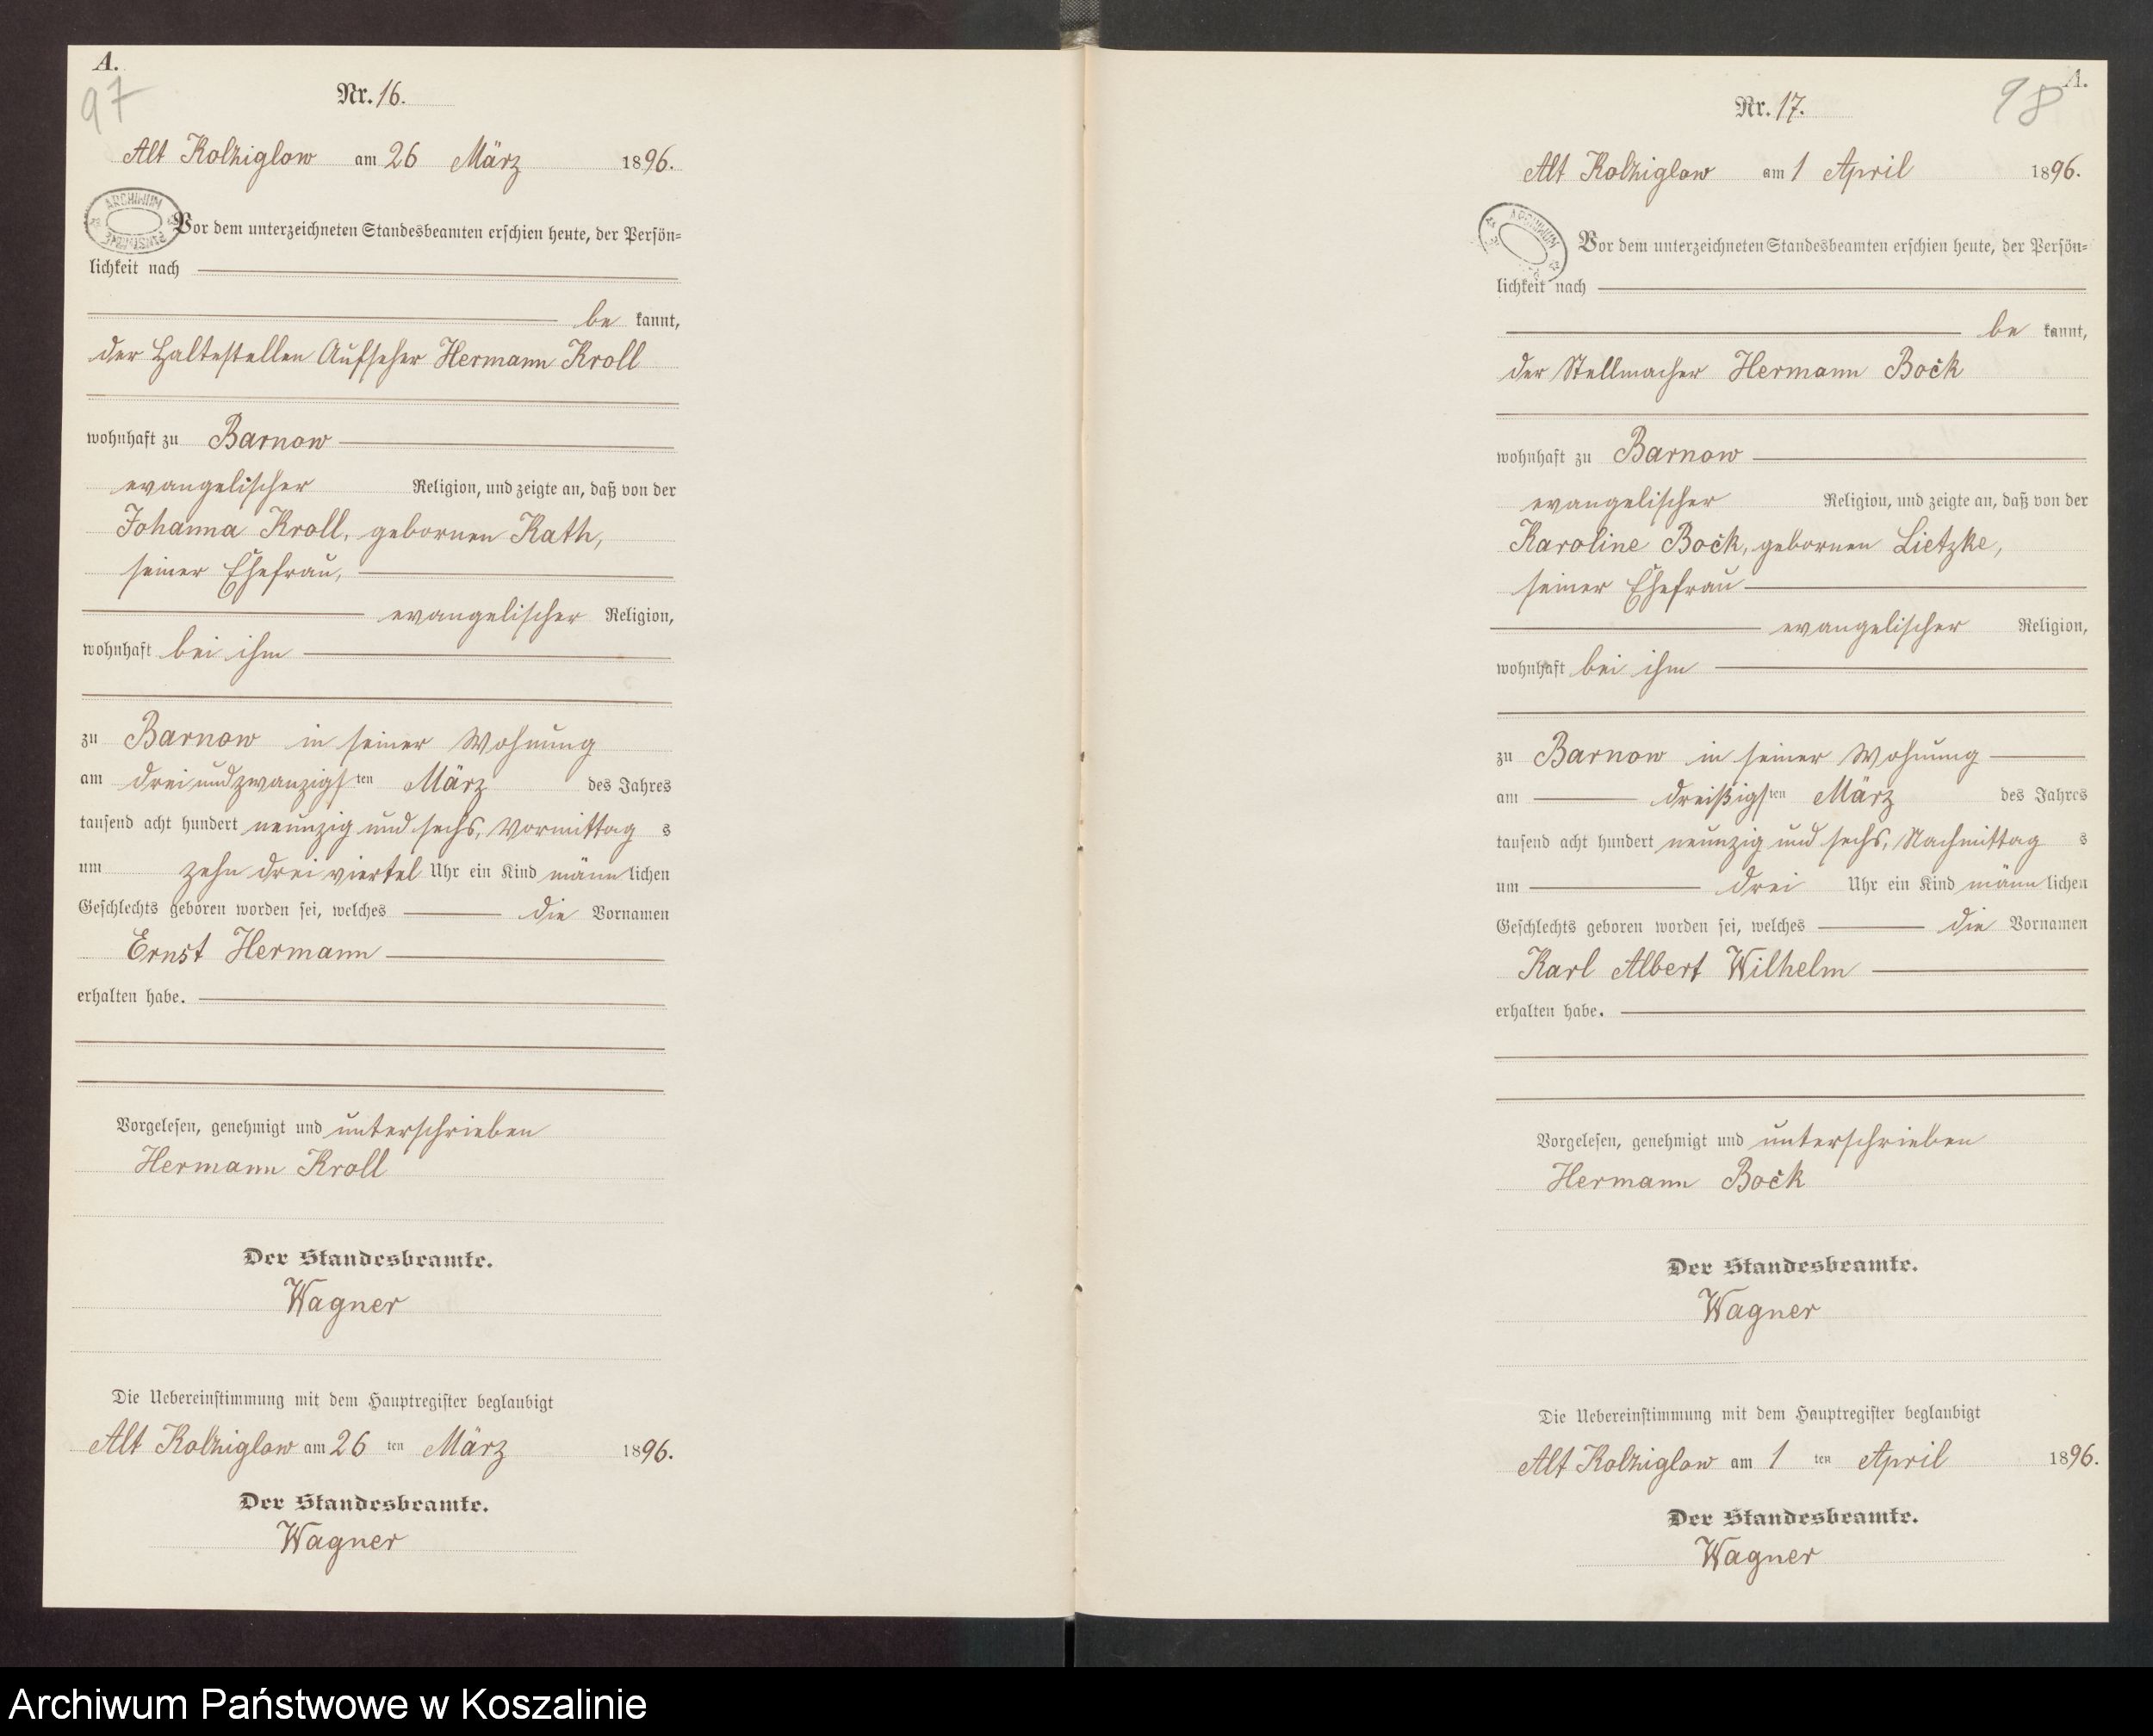 A.
97
Nr. 16.
Alt Kolziglow am 26 März 1896.
ARCHIWUM
Vor dem unterzeichneten Standesbeamten erschien heute, der Persön=
lichkeit nach
be kannt,
der Haltestellen Aufseher Hermann Kroll
wohnhaft zu Barnow
evangelischer Religion, und zeigte an, daß von der
Johanna Kroll, gebornen Rath,
seiner Ehefrau,
evangelischer Religion,
wohnhaft bei ihm
zu Barnow in seiner Wohnung
am drei und zwanzigsten März des Jahres
tausend acht hundert neunzig und sechs, Vormittag s
um zehn drei viertel Uhr ein Kind männlichen
Geschlechts geboren worden sei, welches die Vornamen
Ernst Hermann
erhalten habe.
Vorgelesen, genehmigt und unterschrieben
Hermann Kroll
Der Standesbeamte.
Wagner
Die Uebereinstimmung mit dem Hauptregister beglaubigt
Alt Kolziglow am 26 ten März 1896.
Der Standesbeamte.
Wagner
A.
98
Nr. 17.
Alt Kolziglow am 1 April 1896.
ARCHIWUM
Vor dem unterzeichneten Standesbeamten erschien heute, der Persön=
lichkeit nach
be kannt,
der Stellmacher Hermann Bock
wohnhaft zu Barnow
evangelischer Religion, und zeigte an, daß von der
Karoline Bock, gebornen Lietzke,
seiner Ehefrau
evangelischer Religion,
wohnhaft bei ihm
zu Barnow in seiner Wohnung
am dreißigsten März des Jahres
tausend acht hundert neunzig und sechs, Nachmittag s
um drei Uhr ein Kind männlichen
Geschlechts geboren worden sei, welches die Vornamen
Karl Albert Wilhelm
erhalten habe.
Vorgelesen, genehmigt und unterschrieben
Hermann Bock
Der Standesbeamte.
Wagner
Die Uebereinstimmung mit dem Hauptregister beglaubigt
Alt Kolziglow am 1 ten April 1896.
Der Standesbeamte.
Wagner
Archiwum Państwowe w Koszalinie